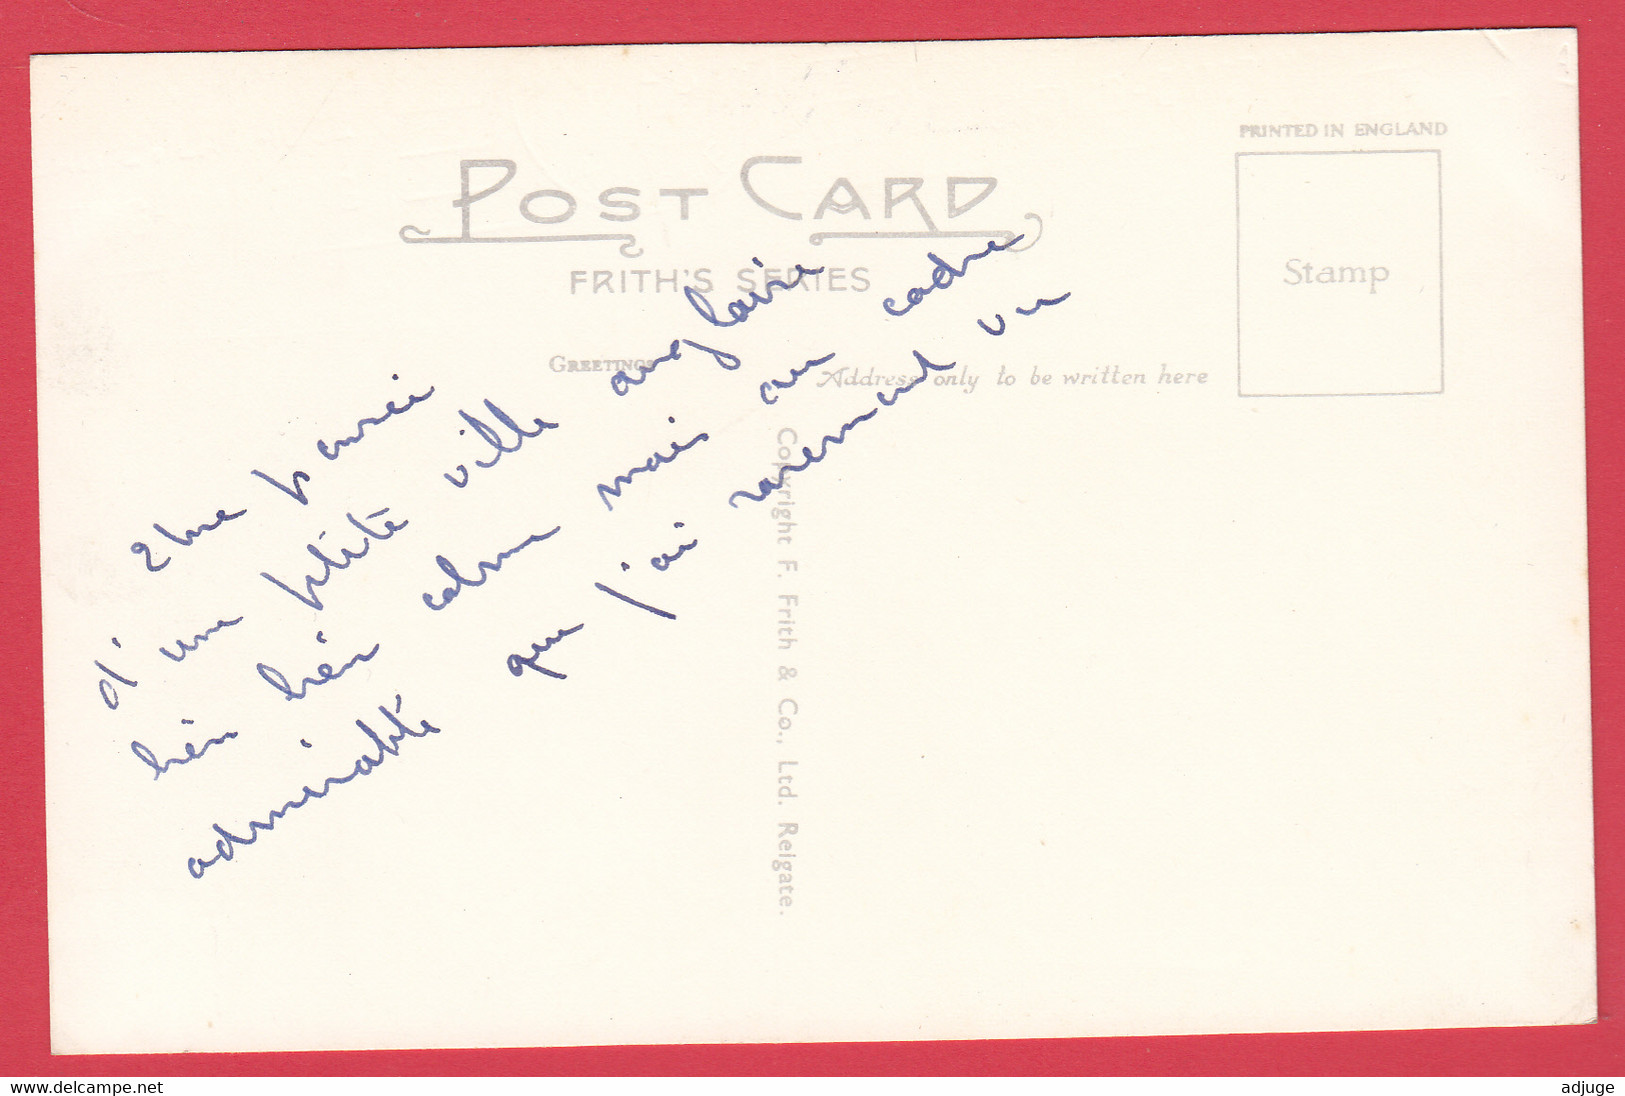 PRINTED IN ENGLAND
POST CARD
FRITH'S SERIES
Stamp
GREETINGS
Address only to be written here
Copyright F. Frith & Co., Ltd. Reigate.
Une pensée
d'une petite ville anglaise
bien bien calme mais au cadre
admirable que j'ai rarement vu
www.delcampe.net
adjuge